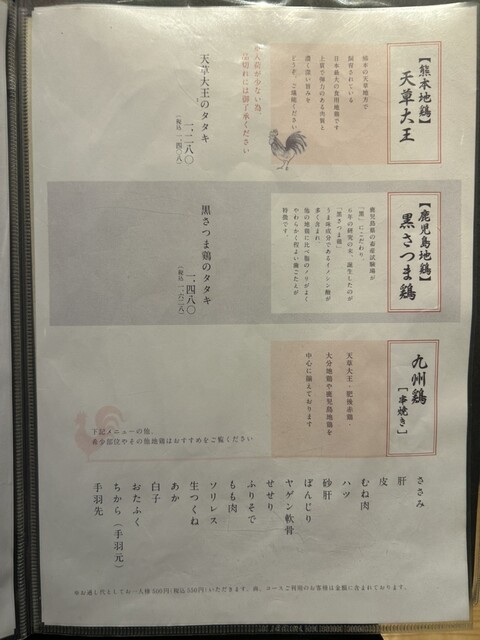 【熊本地鶏】
天草大王
熊本の天草地方で
飼育されている
日本最大の食用地鶏です
上品で弾力のある肉質と
濃い旨みを
どうぞ、ご堪能ください
※入荷が少ない為、
品切れには御了承ください
天草大王のタタキ
一、二八〇
(税込 一、四〇八)
【鹿児島地鶏】
黒さつま鶏
鹿児島県の畜産試験場が
「黒」にこだわり、
6年の研究の末、誕生したのが
「黒さつま鶏」
うま味成分であるイノシン酸が
多く含まれ、
他の地鶏に比べ脂のノリがよく
やわらかく程よい歯ごたえが
特徴です。
黒さつま鶏のタタキ
一、四八〇
(税込 一、六二八)
九州鶏
[串焼き]
天草大王・肥後赤鶏・
大分地鶏や鹿児島地鶏を
中心に揃えております
下記メニューの他、
希少部位やその他地鶏はおすすめをご覧ください
ささみ
肝
皮
むね肉
ハツ
砂肝
ぼんじり
ヤゲン軟骨
せせり
ふりそで
もも肉
ソリレス
生つくね
あか
白子
おたふく
ちから(手羽元)
手羽先
※お通し代としてお一人様500円(税込550円)いただきます。尚、コースご利用のお客様は金額に含まれております。